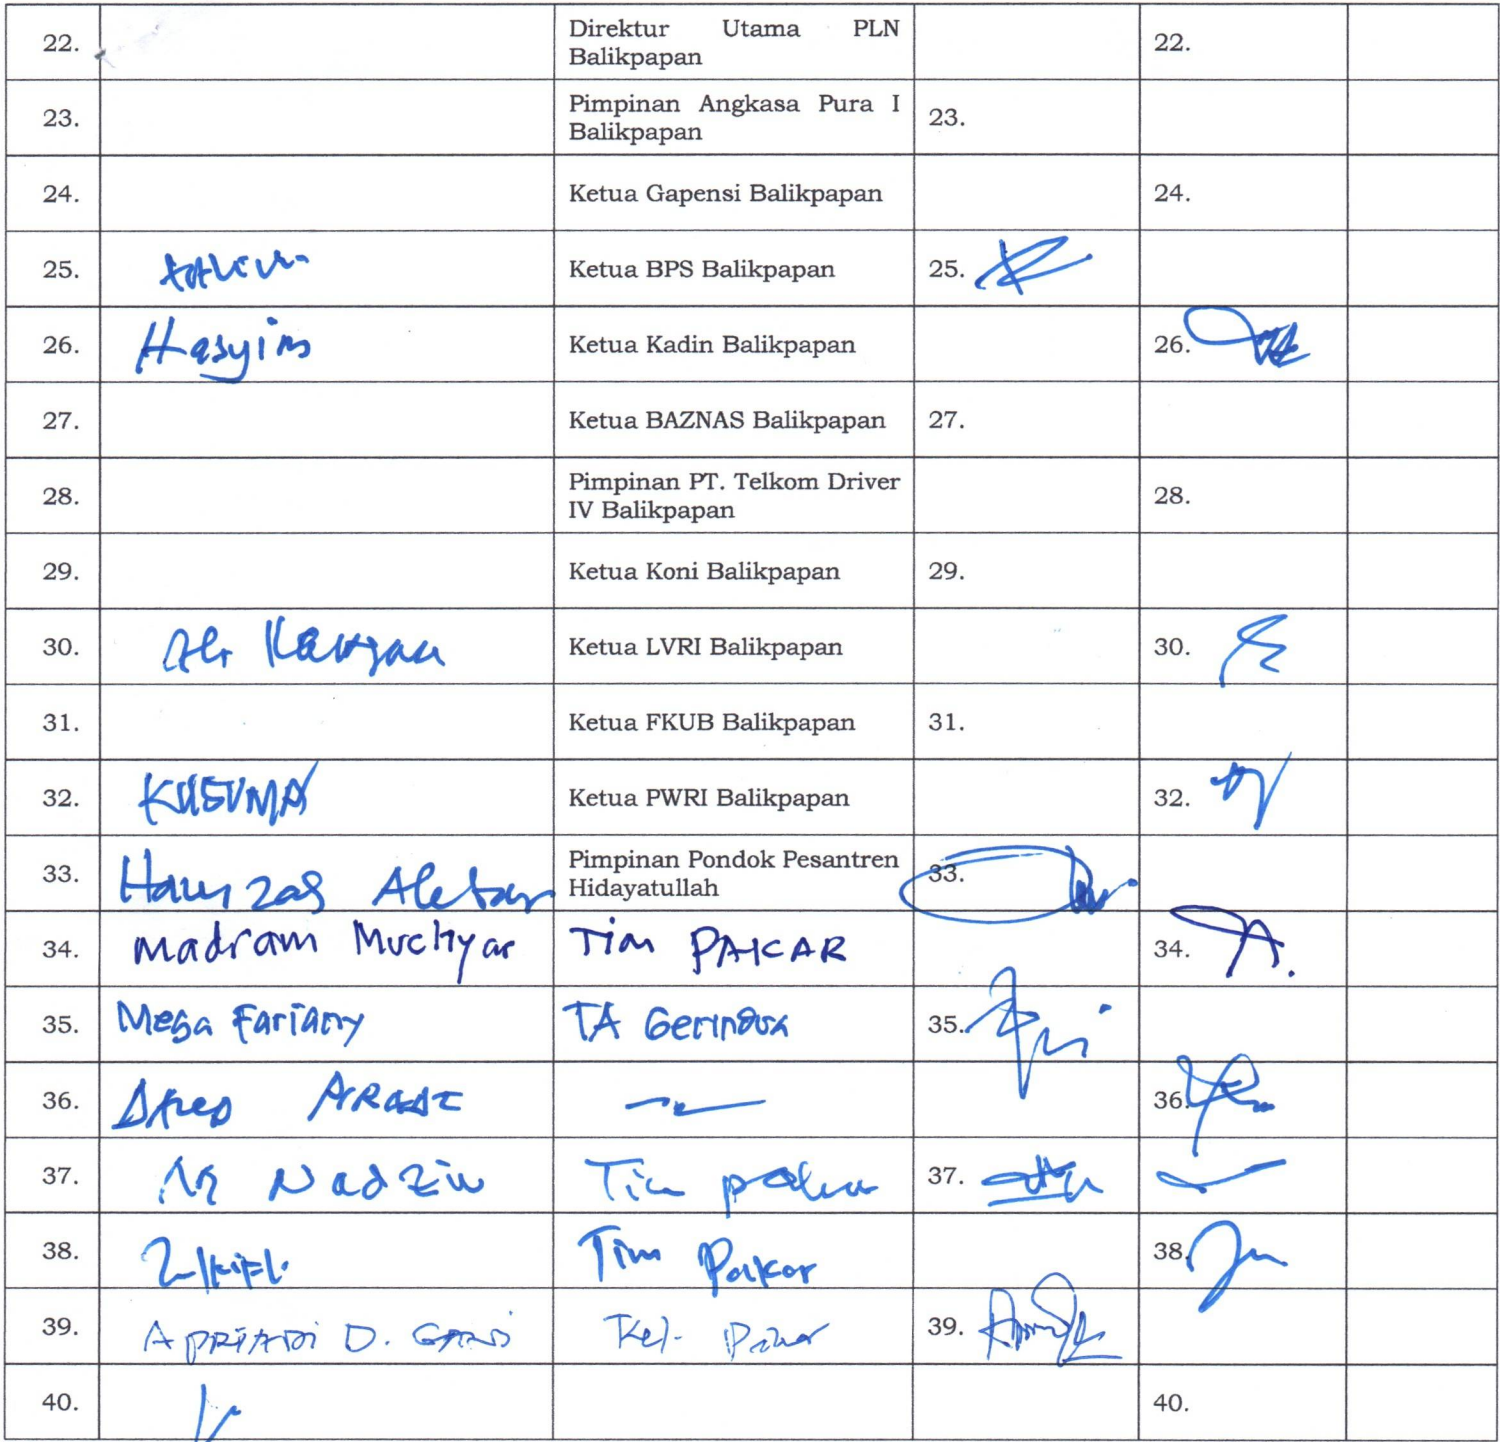 22. Direktur Utama PLN 22.
Balikpapan
23. Pimpinan Angkasa Pura I 23.
Balikpapan
24. Ketua Gapensi Balikpapan 24.
25. Ketua BPS Balikpapan 25.
26. Hasyim Ketua Kadin Balikpapan 26.
27. Ketua BAZNAS Balikpapan 27.
28. Pimpinan PT. Telkom Driver 28.
IV Balikpapan
29. Ketua Koni Balikpapan 29.
30. Ketua LVRI Balikpapan 30.
31. Ketua FKUB Balikpapan 31.
32. KUSUMA Ketua PWRI Balikpapan 32.
33. Pimpinan Pondok Pesantren 33.
Hidayatullah
34. Madram Muchyar Tim PAKAR 34.
35. Mega Fariany TA Gerindra 35.
36. 36.
37. Nadzir Tim pakar 37.
38. Tim Pakar 38.
39. APRIADI D. 39.
40. 40.